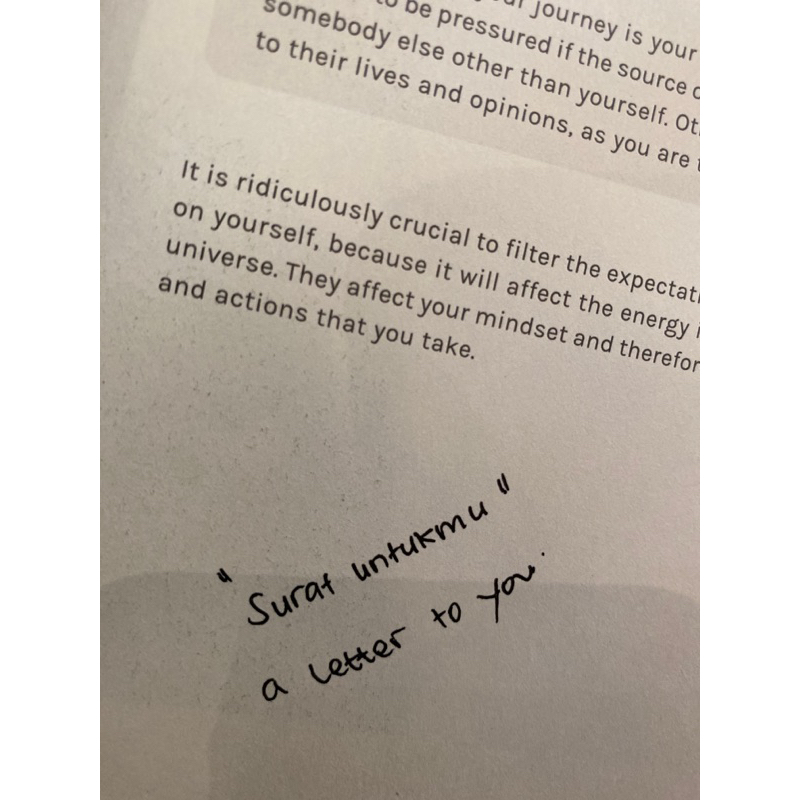 journey is your
be pressured if the source
somebody else other than yourself.
to their lives and opinions, as you are
It is ridiculously crucial to filter the
on yourself, because it will affect the energy
universe. They affect your mindset and
and actions that you take.
"Surat untukmu"
a letter to you.